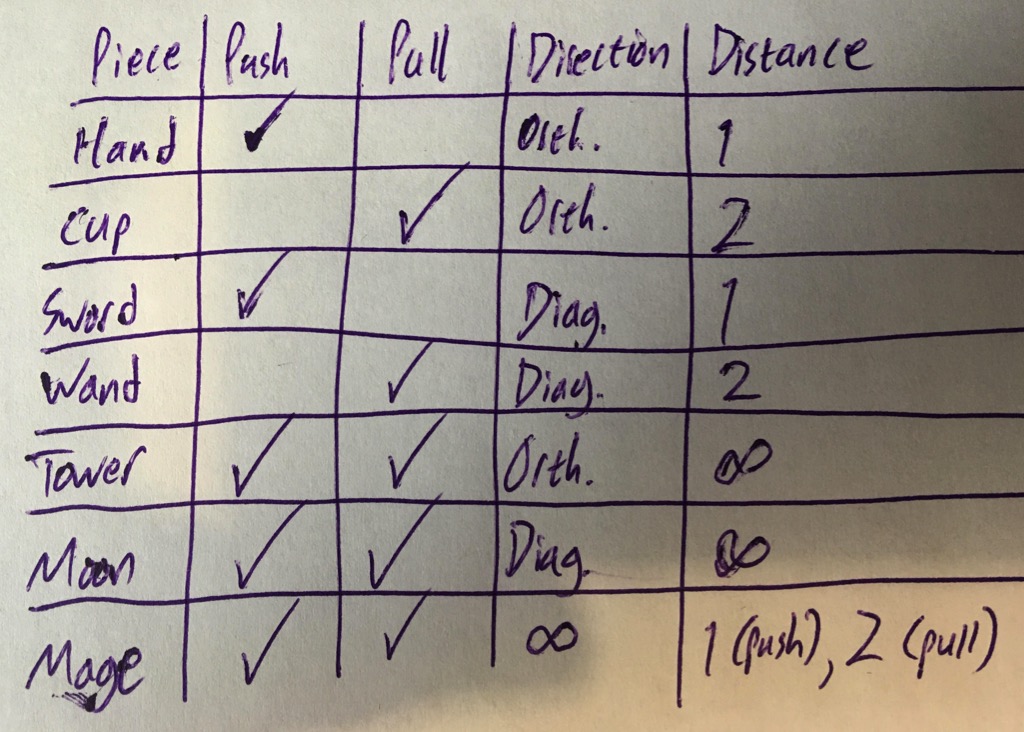 Piece Push Pull Direction Distance
Hand ✓ Orth. 1
Cup ✓ Orth. 2
Sword ✓ Diag. 1
Wand ✓ Diag. 2
Tower ✓ ✓ Orth. ∞
Moon ✓ ✓ Diag. ∞
Mage ✓ ✓ ∞ 1 (push), 2 (pull)